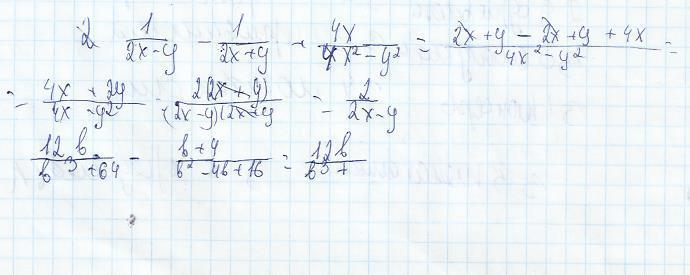 2 1/(2x-y) - 1/(2x+y) + 4x/(4x²-y²) = (2x+y - 2x+y + 4x)/(4x²-y²) =
= (4x + 2y)/(4x - y²) = 2(2x+y)/((2x-y)(2x+y) = 2/(2x-y)
12b/(b³+64) - (b+4)/(b²-4b+16) = 12b/(b³+